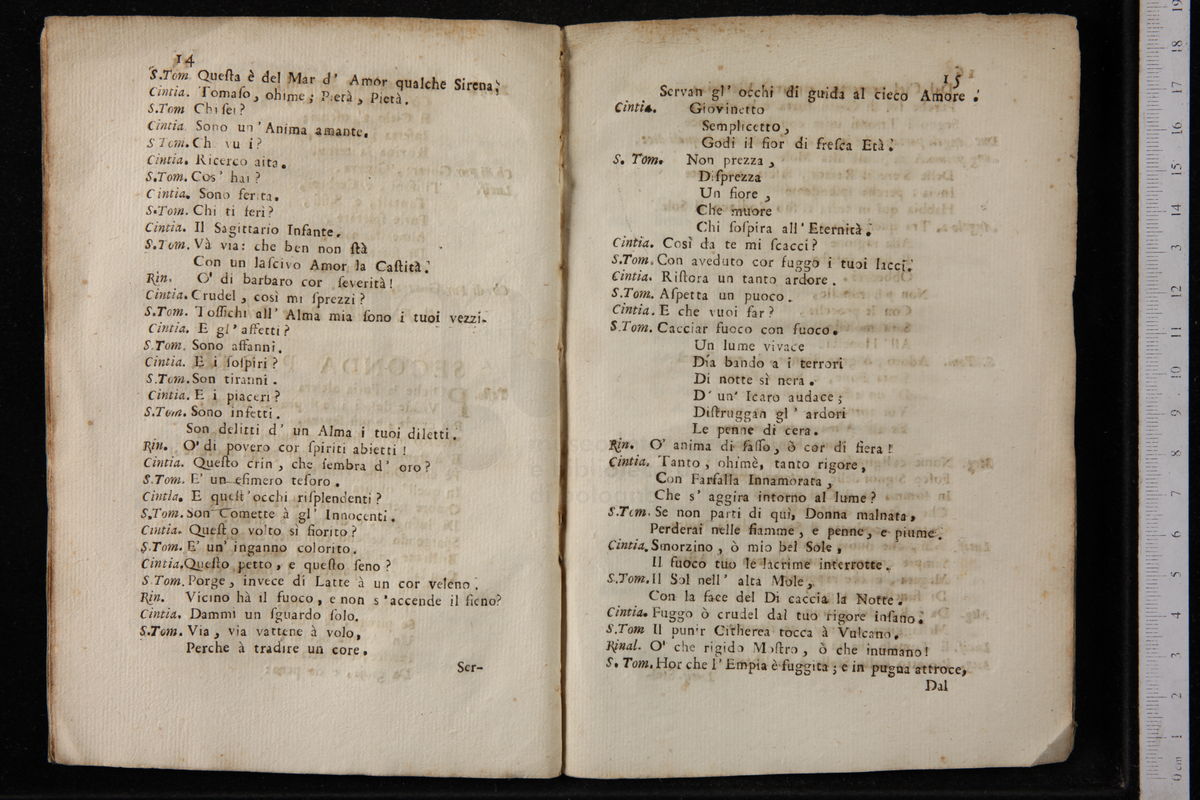 14
S.Tom. Queſta è del Mar d' Amor qualche Sirena;
Cintia. Tomaſo, ohime; Pietà, Pietà.
S.Tom Chi ſei?
Cintia. Sono un' Anima amante.
S Tom. Ch vu i?
Cintia. Ricerco aita.
S.Tom. Cos' hai?
Cintia. Sono ferita.
S.Tom. Chi ti ferì?
Cintia. Il Sagittario Infante.
S.Tom. Và via: che ben non ſtà
Con un laſcivo Amor la Caſtità.
Rin. O' di barbaro cor ſeverità!
Cintia. Crudel, così mi ſprezzi?
S.Tom. Toſſichi all' Alma mia ſono i tuoi vezzi.
Cintia. E gl' affetti?
S.Tom. Sono affanni.
Cintia. E i ſoſpiri?
S.Tom. Son tiranni.
Cintia. E i piaceri?
S.Tom. Sono infetti.
Son delitti d' un Alma i tuoi diletti.
Rin. O' di povero cor ſpiriti abietti!
Cintia. Queſto crin, che ſembra d' oro?
S.Tom. E' un efimero teſoro.
Cintia. E queſt'occhi riſplendenti?
S.Tom. Son Comette à gl' Innocenti.
Cintia. Queſto volto sì fiorito?
S.Tom. E' un' inganno colorito.
Cintia. Queſto petto, e queſto ſeno?
S.Tom. Porge, invece di Latte à un cor veleno.
Rin. Vicino hà il fuoco, e non s'accende il fieno?
Cintia. Dammi un ſguardo ſolo.
S.Tom. Via, via vattene à volo,
Perche à tradire un core.
Ser-
15
Servan gl' occhi di guida al cieco Amore.
Cintia. Giovinetto
Semplicetto,
Godi il fior di freſca Età.
S. Tom. Non prezza,
Diſprezza
Un fiore,
Che muore
Chi ſoſpira all' Eternità.
Cintia. Così da te mi ſcacci?
S.Tom. Con aveduto cor fuggo i tuoi lacci.
Cintia. Riſtora un tanto ardore.
S.Tom. Aſpetta un puoco.
Cintia. E che vuoi far?
S.Tom. Cacciar fuoco con fuoco.
Un lume vivace
Dia bando a i terrori
Di notte sì nera.
D' un' Icaro audace;
Diſtruggan gl' ardori
Le penne di cera.
Rin. O' anima di ſaſſo, ò cor di fiera!
Cintia. Tanto, ohimè, tanto rigore,
Con Farfalla Innamorata,
Che s' aggira intorno al lume?
S.Tom. Se non parti di quì, Donna malnata,
Perderai nelle fiamme, e penne, e piume.
Cintia. Smorzino, ò mio bel Sole,
Il fuoco tuo le lacrime interrotte.
S.Tom. Il Sol nell' alta Mole,
Con la face del Di caccia la Notte.
Cintia. Fuggo ò crudel dal tuo rigore inſano.
S.Tom Il punir Citherea tocca à Vulcano.
Rinal. O' che rigido Moſtro, ò che inumano!
S. Tom. Hor che l' Empia è fuggita; e in pugna attroce,
Dal